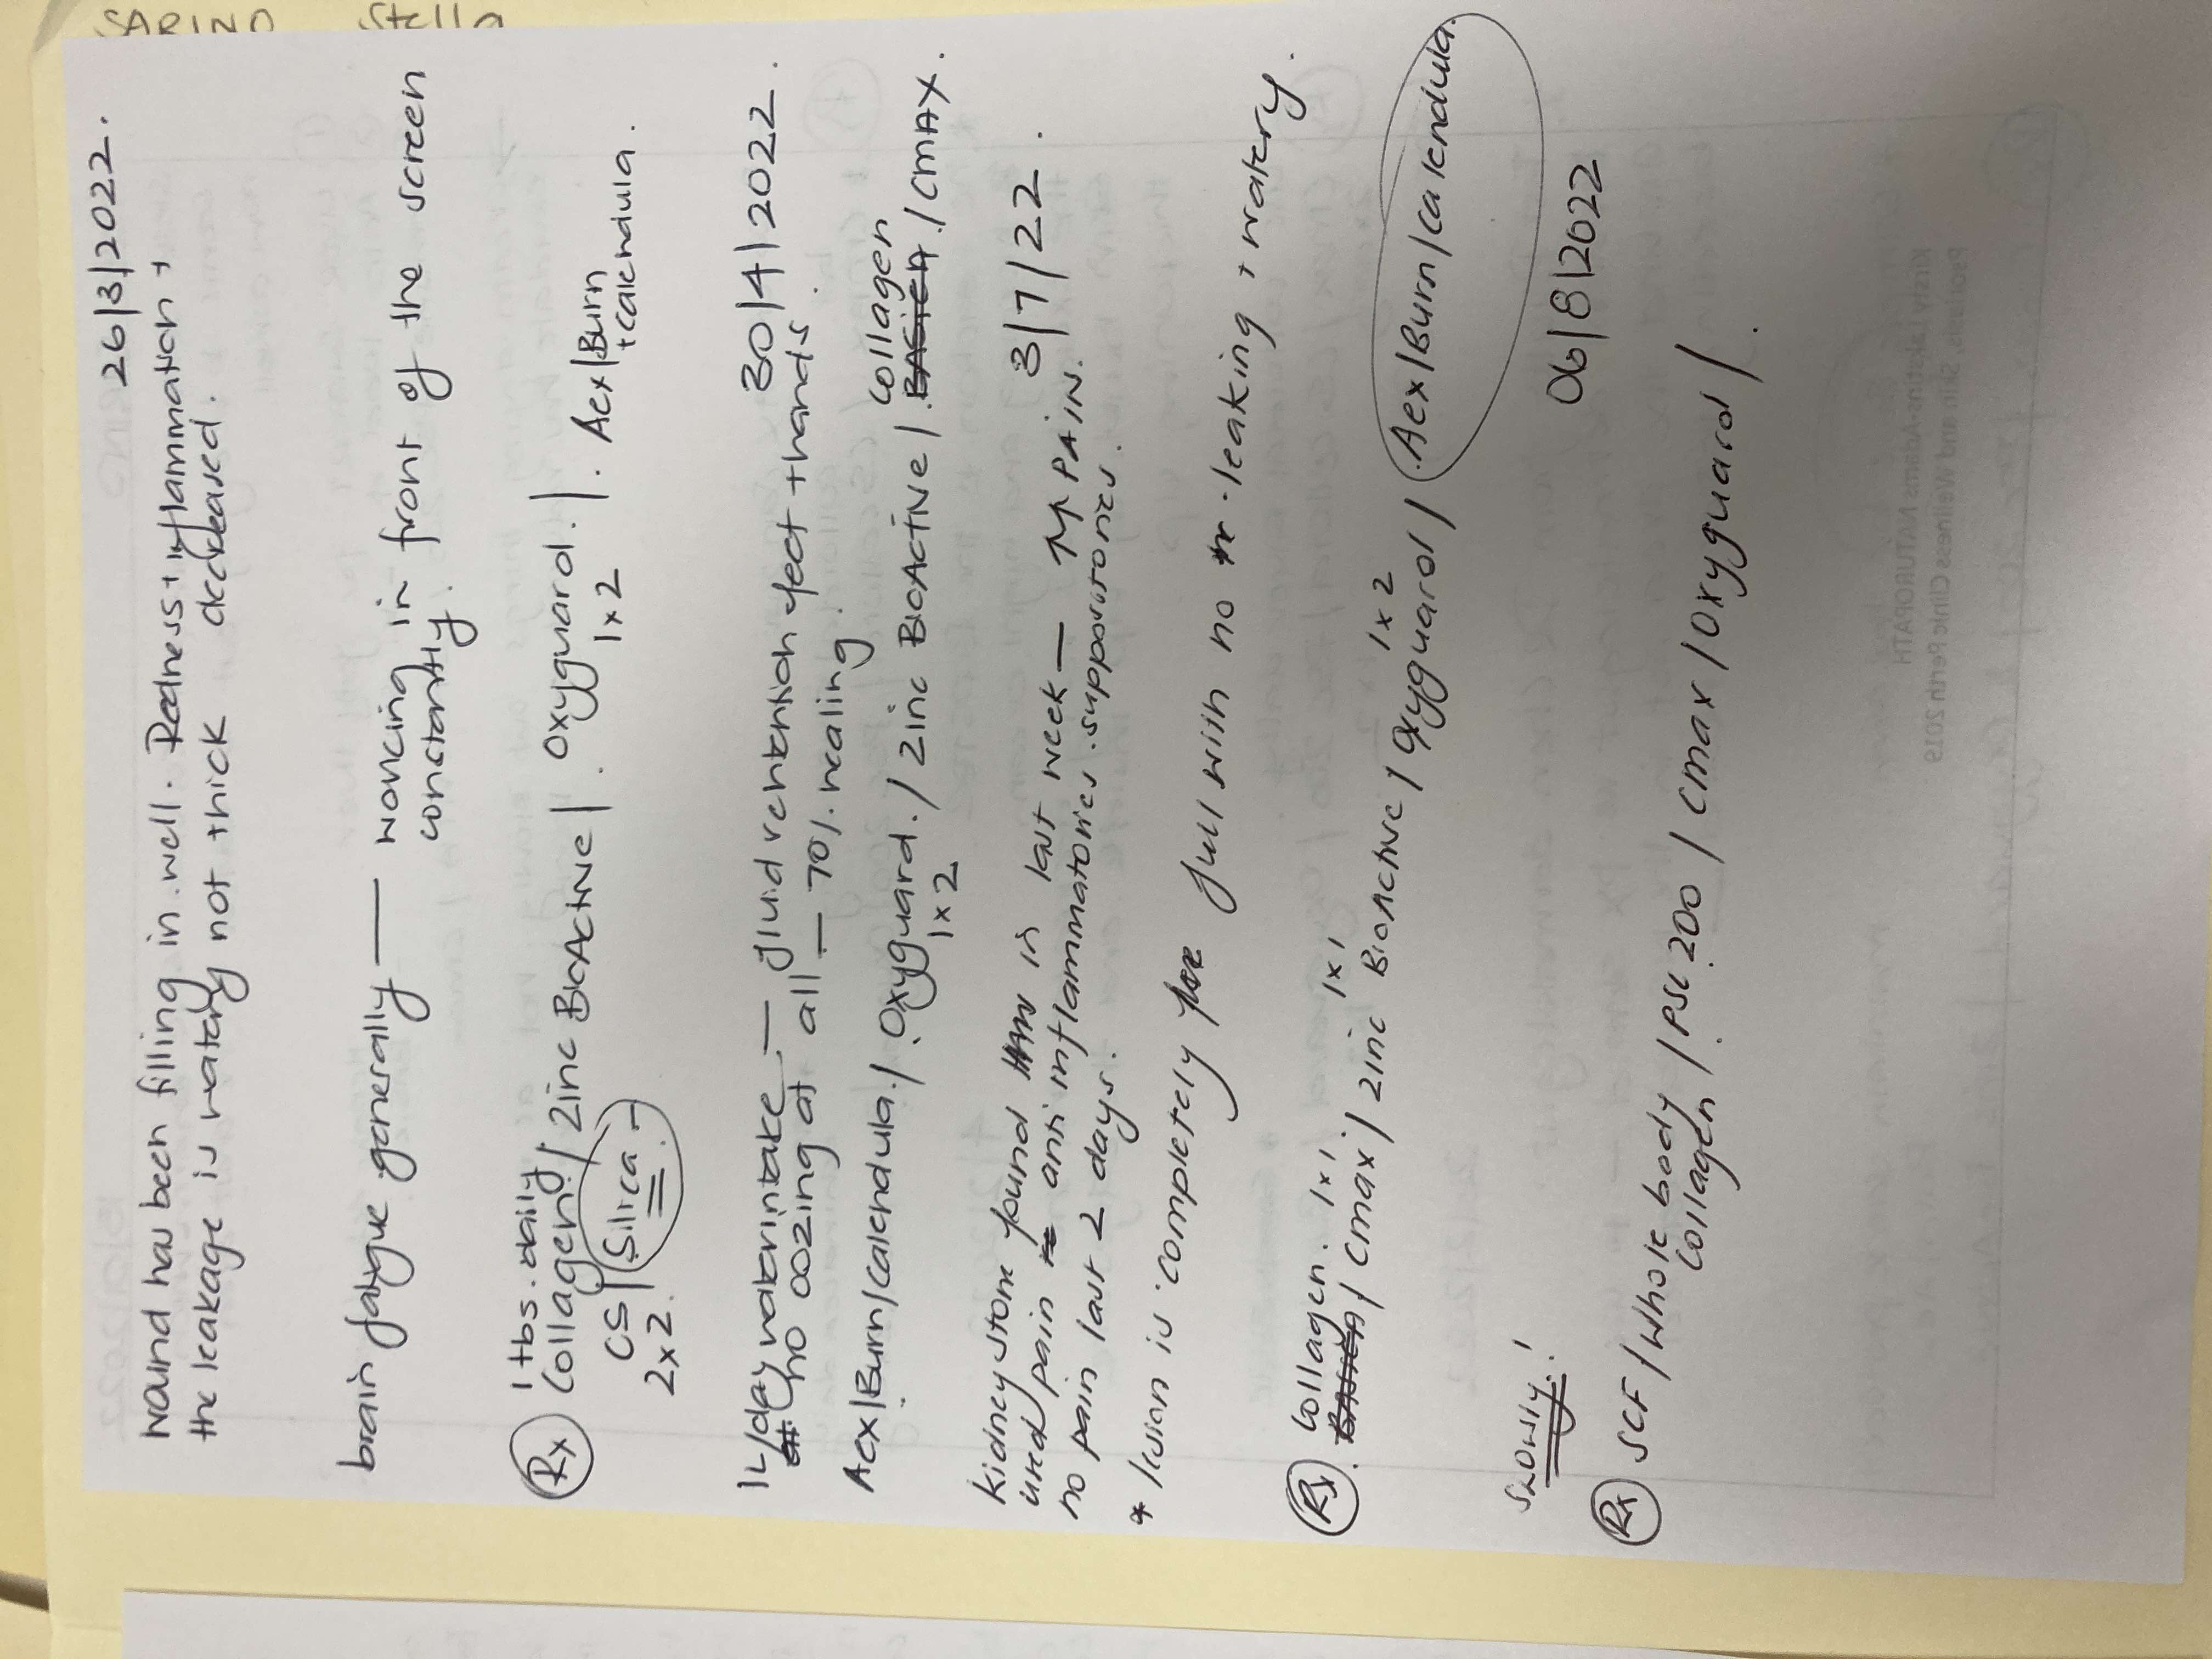 SARINO Stella
26/3/2022.
Wound has been filling in well. Redness + inflammation +
the leakage is watery not thick decreased.
brain fatigue generally — working in front of the screen
constantly.
1 tbs. daily
Rx Collagen / Zinc BioActive / Oxyguard. / . Aex/Burn
1x2 + calendula.
CS / Silica.
2x2.
30/4/2022.
1L/day water intake. — fluid retention feet + hands
no oozing at all — 70% healing.
Aex/Burn/calendula. / Oxyguard. / Zinc BioActive / Collagen / CMAX.
1x2
3/7/22.
kidney stone found in last week — ↑↑ PAIN.
used pain anti inflammatories. suppositories.
no pain last 2 days.
* lesion is completely full with no leaking + watery.
Rx Collagen. 1x1 1x1 1x2
/ Cmax / Zinc BioActive / Oxyguard / Aex/Burn/calendula.
06/8/2022
Slowly!
Rx SCF / Whole body / PSC 200 / Cmax / Oxyguard /
Collagen
Psoriasis, Skin and Wellness Clinic Perth 2019
NATUROPATH